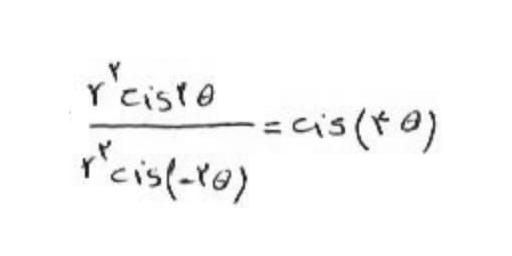 r^۲ cis۲θ / r^۲ cis(-۲θ) = cis(۴θ)